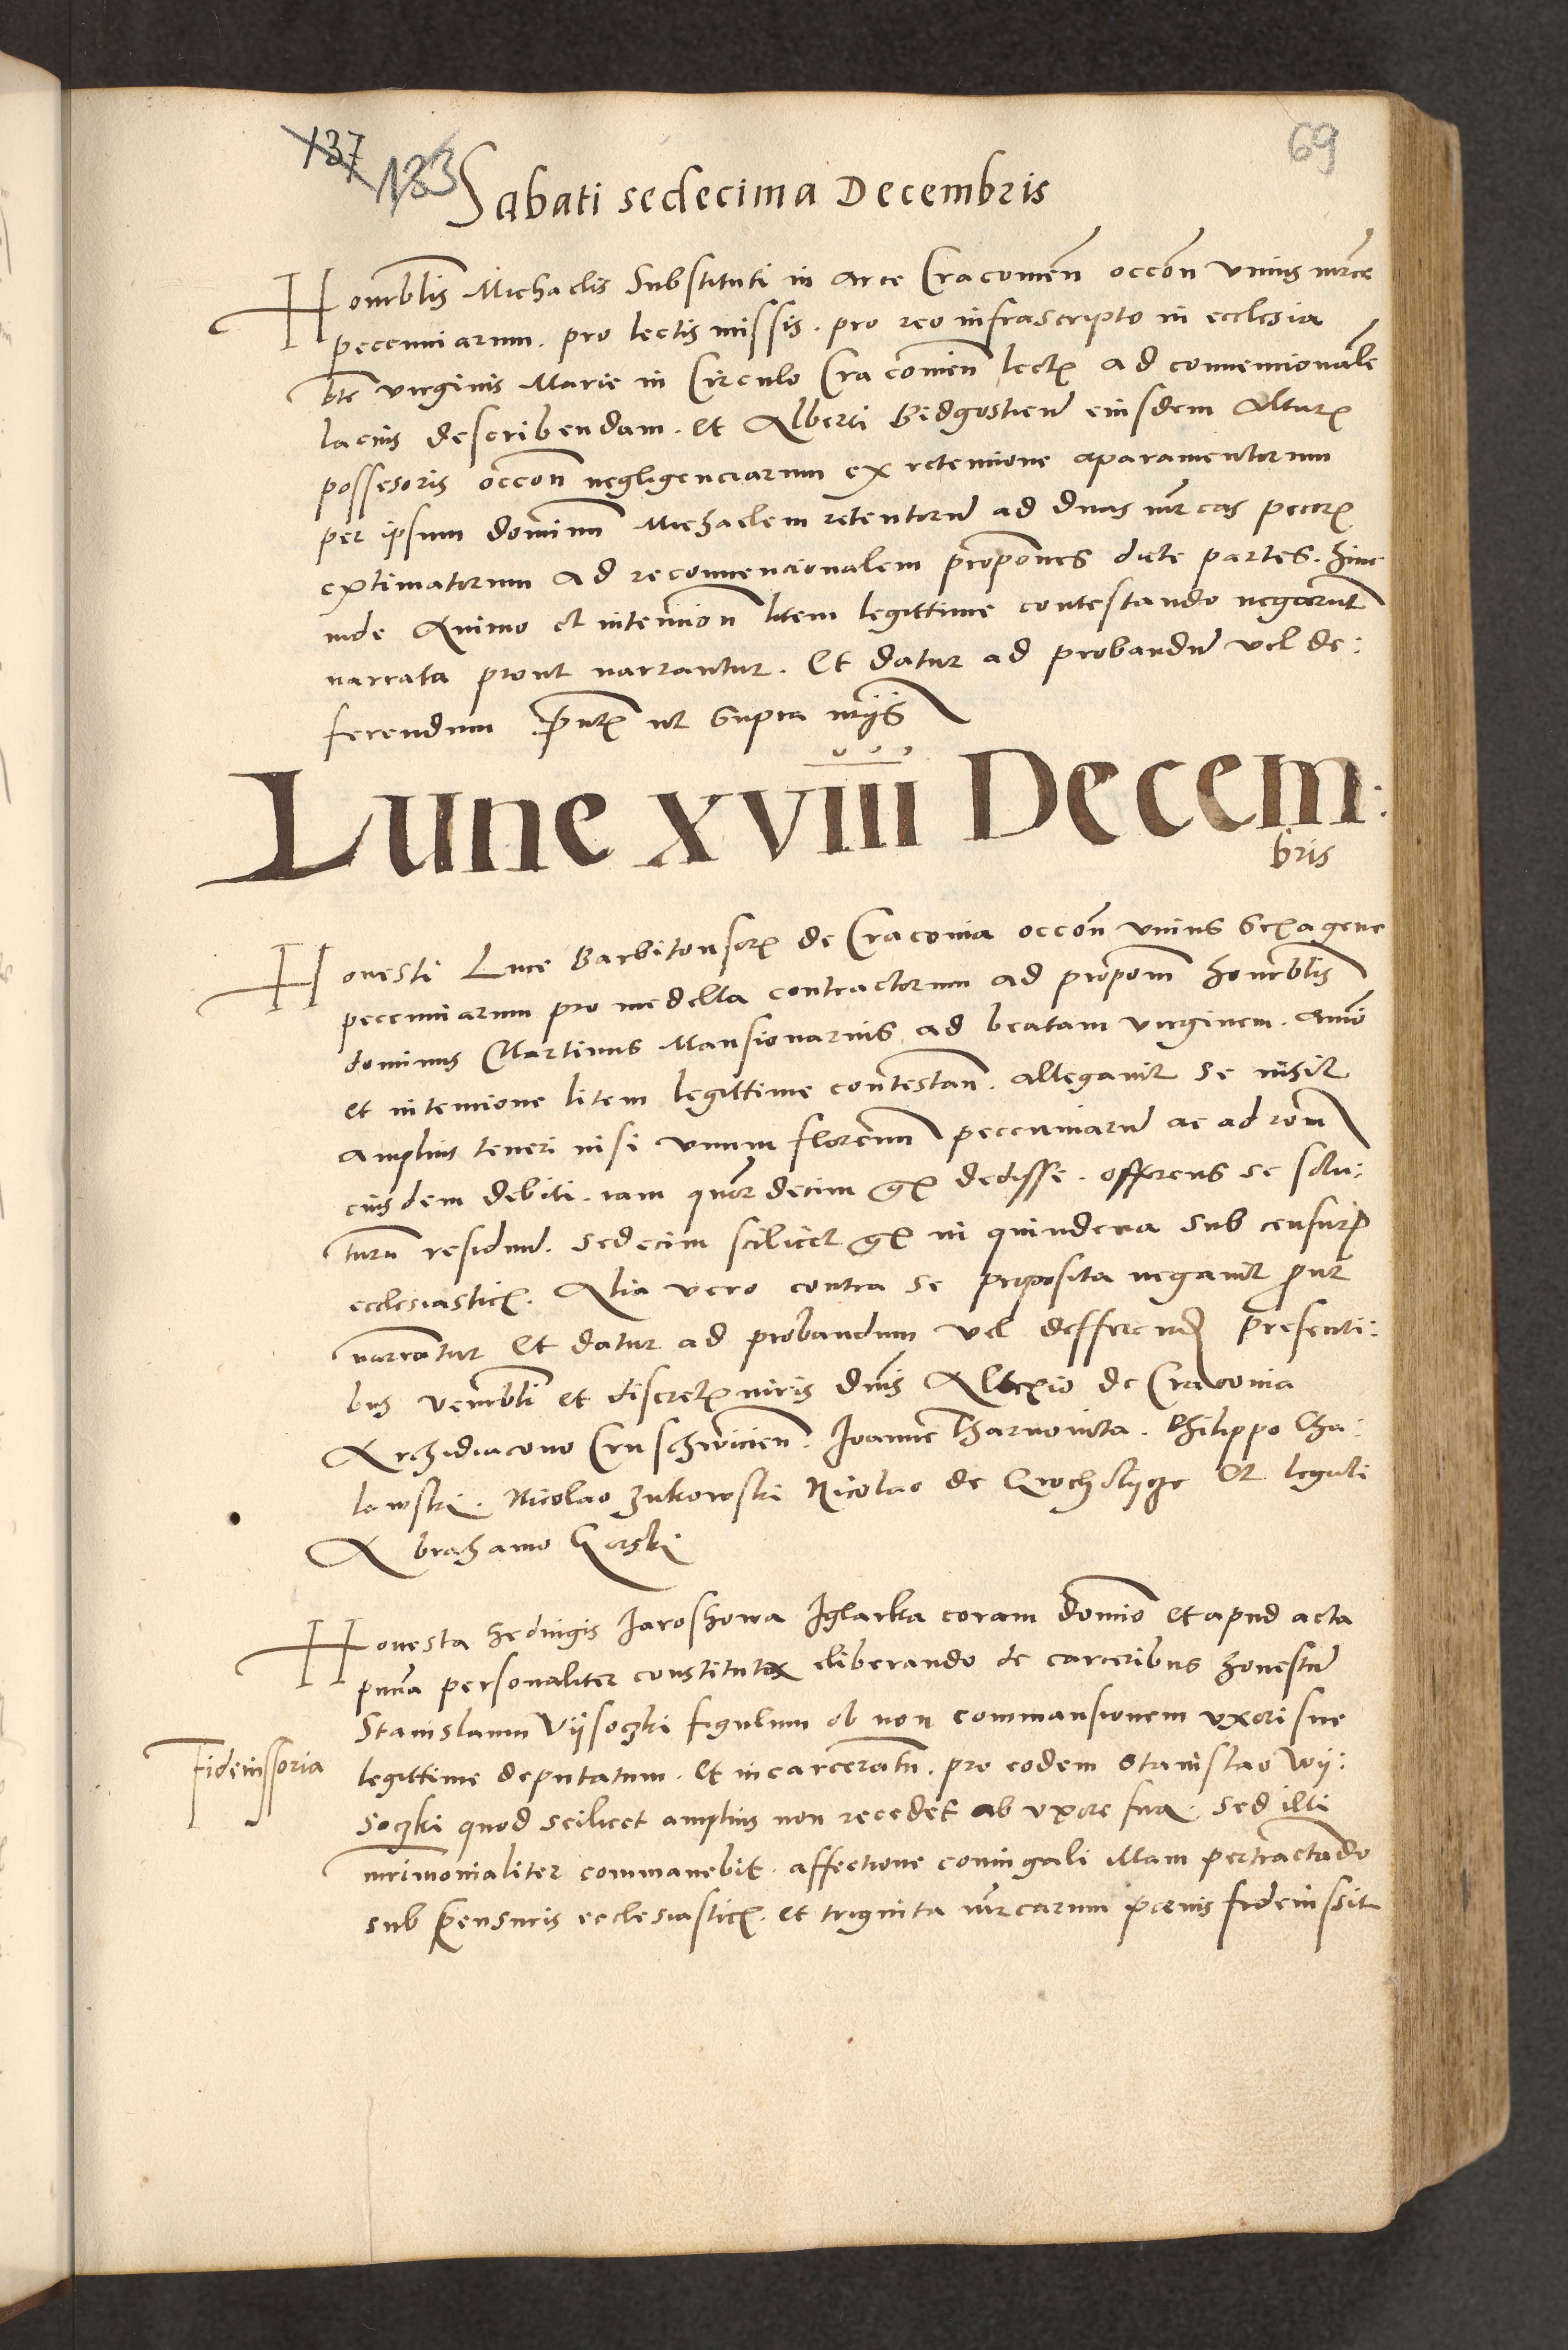 137 133
69
Sabati sedecima Decembris
Honrablis Michaelis Substituti in arce Cracovien occon unius mrce
pecceniarum. pro lectis missis. pro reo infrascripto in ecclesia
bte virginis Marie in Circulo Cracovien lect ad convencionale
lacius describendam. et Alberti Bidgostien eiusdem Altar
possesoris occon negligenciarum ex retencione aparamentorum
per ipsum dominum Michaelem retentoru ad duas mrcas pecce
extimatorum ad reconvencionalem propones dicte partes. hinc
inde Animo et intencion litem legittime contestando negarunt
narrata prout narrantur. Et datur ad probandu vel de:
ferendum pntz ut supra
Lune xviii Decem:
bris
Honesti Luce Barbitonsoris de Cracovia occon unius sexagene
pecceniarum pro medella contractorum ad propom honrablis
dominus Martinus Mansionarius ad beatam virginem. animo
et intencione litem legittime contestan. allegavit se
amplius teneri nisi unum florenum pecceniaru ac ad ron
eiusdem debiti. iam quor decim gr dedisse. offerens se solu:
turu residuu. sedecim scilicet gr in quindena sub censur
ecclesiastic. Alia vero contra se proposita negavit prout
narrantur Et datur ad probandum vel defferend presenti:
bus venerabli et discret viris dnis Allexio de Cracovia
Archidiacono Cruschwicien. Joanne Tharnowita. Philippo Cha:
lawski. Nicolao Zukowski Nicolao de Grocholycze Et legali
Abrahamo Gorski
Honesta Hedvigis Jaroshowa Iglarka coram domino et apud acta
pntia personaliter constituta eliberando de carceribus honestu
Stanislaum Vijsoczki figulum ob non commansionem uxori sue
Fideiussoria
legittime deputatum. Et incarceratu. pro eodem Stanislao Wij:
soczki quod scilicet amplius non recedet ab uxore sua. sed illi
mrimonialiter commanebit. affectione coniugali illam pertractado
sub censuris ecclesiastic. et triginta mrcarum penis fideiussit